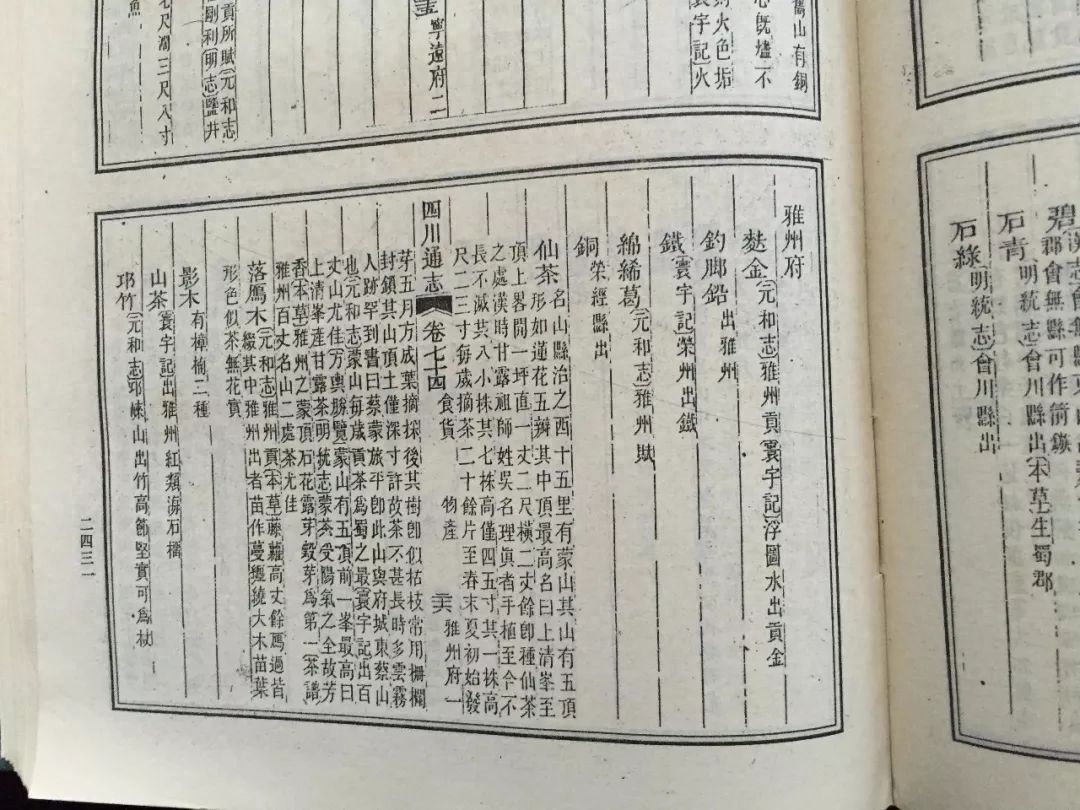 舊山有銅
寧遠府二
貢所賦元和志
剛利明志鹽井
七尺濶三尺八寸
魚
碧
郡會無縣可作箭鏃
石青
明統志會川縣出本草生蜀郡
石綠明統志會川縣出
雅州府
麩金元和志雅州貢寰宇記浮圖水出貢金
釣脚鉛出雅州
鐵寰宇記榮州出鐵
綿絺葛元和志雅州賦
銅榮經縣出
仙茶名山縣治之西十五里有蒙山其山有五頂
形如蓮花五瓣其中頂最高名曰上清峯至
頂上畧開一坪直一丈二尺橫二丈餘卽種仙茶
之處漢時甘露祖師姓吳名理眞者手植至今不
長不滅共八小株其七株高僅四五寸其一株高
尺二三寸每歲摘茶二十餘片至春末夏初始發
四川通志 卷七十四 食貨 物產 雅州府一
芽五月方成葉摘採後其樹卽似枯枝常用柵欄
封鎖其山頂土僅深寸許故茶不甚長時多雲霧
人跡罕到書曰蔡蒙旅平卽此山與府城東蔡山
也元和志蒙山每歲貢茶爲蜀之最寰宇記出百
丈山尤佳方輿勝覽蒙山有五頂前一峯最高曰
上清峯產甘露茶明統志蒙茶受陽氣之全故芳
香本草雅州之蒙頂石花露芽穀芽爲第一茶譜
雅州百丈名山二處茶尤佳
落鴈木元和志雅州貢本草藤蘿高丈餘鴈過皆
綴其中雅州出者苗作蔓纏繞大木苗葉
形色似茶無花實
影木有樟楠二種
山茶寰宇記出雅州紅類海石橊
邛竹元和志邛崍山出竹高節堅實可爲杖
二四三一